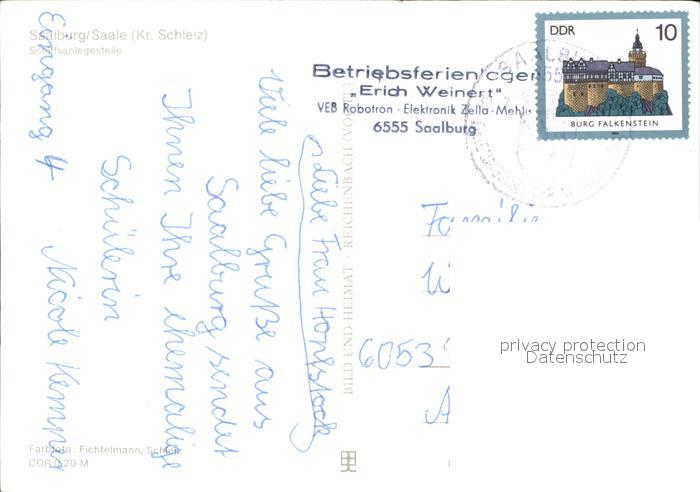 Saalburg/Saale (Kr. Schleiz)
Schiffsanlegestelle
Liebe Frau
Viele liebe Grüße aus
Saalburg sendet
Ihnen Ihre ehemalige
Schülerin
Nicole
Eingang 4
Farbfoto: Fichtelmann, Schleiz
DDR 0,20 M
BILD UND HEIMAT · REICHENBACH
Betriebsferienlager
„Erich Weinert"
VEB Robotron - Elektronik Zella-Mehlis
6555 Saalburg
SAALBU
DDR
10
BURG FALKENSTEIN
Famili
W
6053
A
privacy protection
Datenschutz